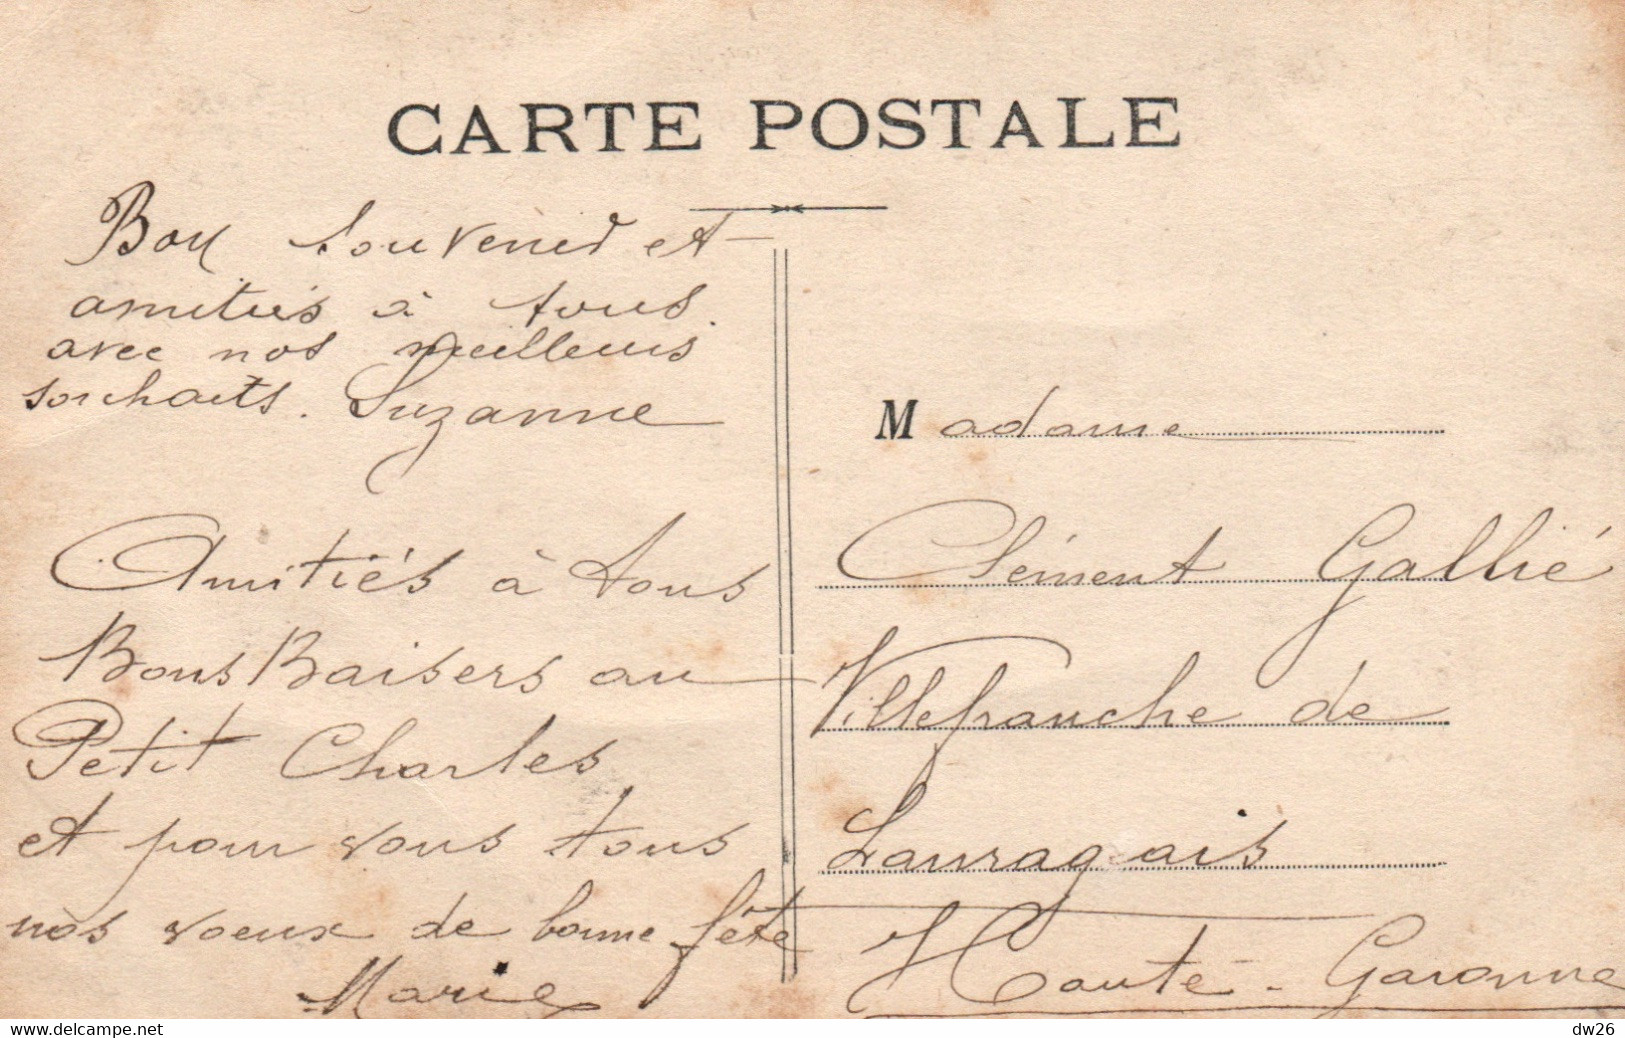 CARTE POSTALE
Bon souvenir et
amitiés à tous
avec nos meilleurs
souhaits. Suzanne
Amitiés à tous
Bons Baisers au
Petit Charles
et pour vous tous
nos voeux de bonne fête
Marie
Madame
Clément Gallié
Villefranche de
Lauragais
Haute-Garonne
dw26